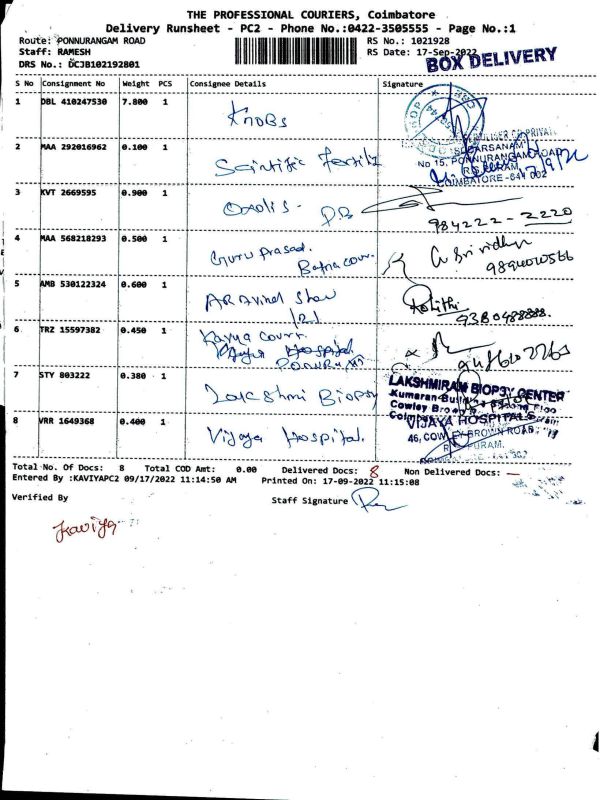 THE PROFESSIONAL COURIERS, Coimbatore
Delivery Runsheet - PC2 - Phone No.:0422-3505555 - Page No.:1
Route: PONNURANGAM ROAD RS No.: 1021928
Staff: RAMESH RS Date: 17-Sep-2022
DRS No.: DCJB102192801 BOX DELIVERY
S No Consignment No Weight PCS Consignee Details Signature
1 DBL 410247530 7.800 1 Knobs
2 MAA 292016962 0.100 1 Scintific Fertiliz
No 15, PONNURANGAM ROAD
R.S. PURAM,
COIMBATORE - 641 002
3 KVT 2669595 0.900 1 984222-2220
4 MAA 568218293 0.500 1 Guru Prasad.
5 AMB 530122324 0.600 1 ARAvind Shaw
9380488888.
6 TRZ 15597382 0.450 1 Kavya Court.
Hospital
7 STY 803222 0.380 1 Lakshmi Biopsy LAKSHMIRAM BIOPSY CENTER
8 VRR 1649368 0.400 1 Vijaya Hospital. VIJAYA HOSPITALS
46, COWLEY BROWN ROAD,
Total No. Of Docs: 8 Total COD Amt: 0.00 Delivered Docs: 8 Non Delivered Docs: —
Entered By :KAVIYAPC2 09/17/2022 11:14:50 AM Printed On: 17-09-2022 11:15:08
Verified By Staff Signature
Kaviya